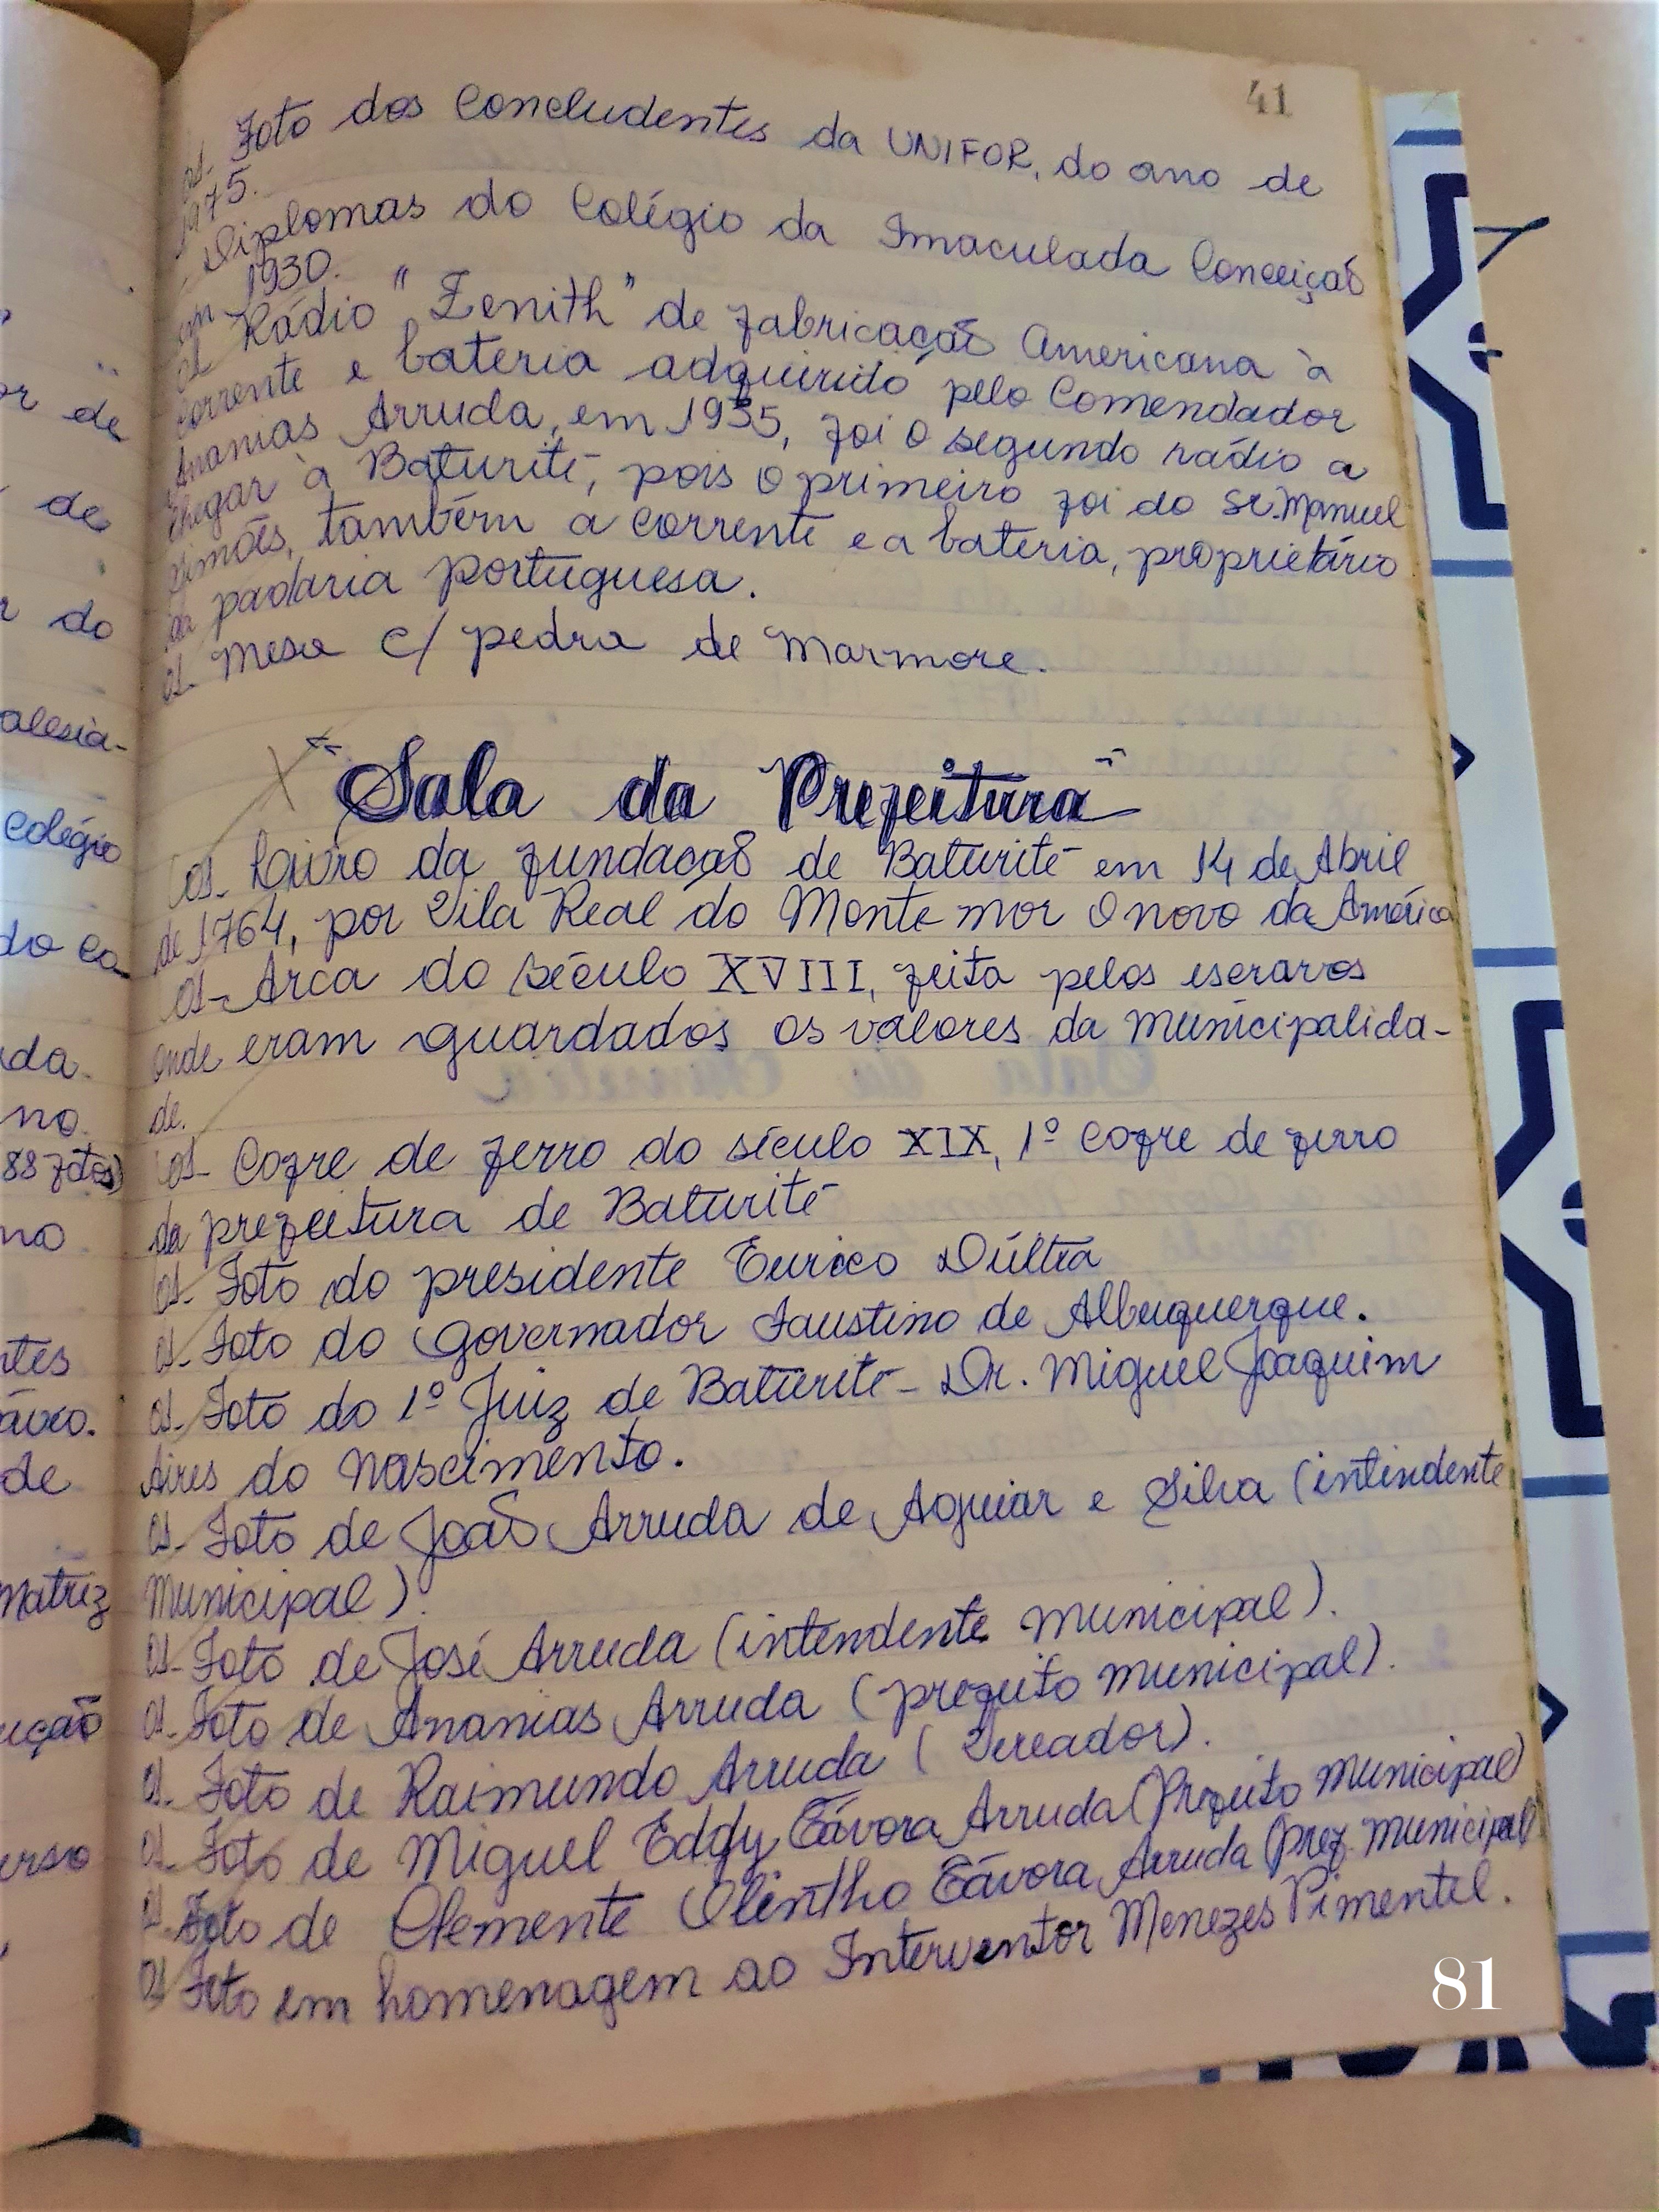 41
01- Foto dos Concludentes da UNIFOR, do ano de
1975.
Diplomas do Colégio da Imaculada Conceição
em 1930.
01 Rádio "Zenith" de fabricação Americana à
corrente e bateria adquirido pelo Comendador
Ananias Arruda, em 1935, foi o segundo rádio a
chegar à Baturité, pois o primeiro foi do Sr. Manuel
Simões, também a corrente e a bateria, proprietário
da padaria portuguesa.
01- Mesa c/ pedra de Marmore.
"Sala da Prefeitura"
01- Livro da fundacaõ de Baturité em 14 de Abril
de 1764, por Vila Real do Monte mor O novo da América
01- Arca do século XVIII, feita pelos escravos
onde eram guardados os valores da municipalida-
de.
01- Cofre de ferro do século XIX, 1º Cofre de ferro
da prefeitura de Baturité
01- Foto do presidente Eurico Dúltra
01- Foto do Governador Faustino de Albuquerque.
01- Foto do 1º Juiz de Baturité- Dr. Miguel Joaquim
Aires do Nascimento.
01- Foto de João Arruda de Aguiar e Silva (intendente
Municipal).
01- Foto de José Arruda (intendente municipal).
01- Foto de Ananias Arruda (prefeito municipal).
01- Foto de Raimundo Arruda (Vereador).
01- Foto de Miguel Eddy Távora Arruda (Prefeito Municipal)
01- Foto de Clemente Olintho Távora Arruda (pref. Municipal)
01 Foto em homenagem ao Interventor Menezes Pimentel.
81
or de
de
do
alesia-
colégio
do Co-
da.
no.
88 fotos)
no
ntes
de
matriz
ução
erso